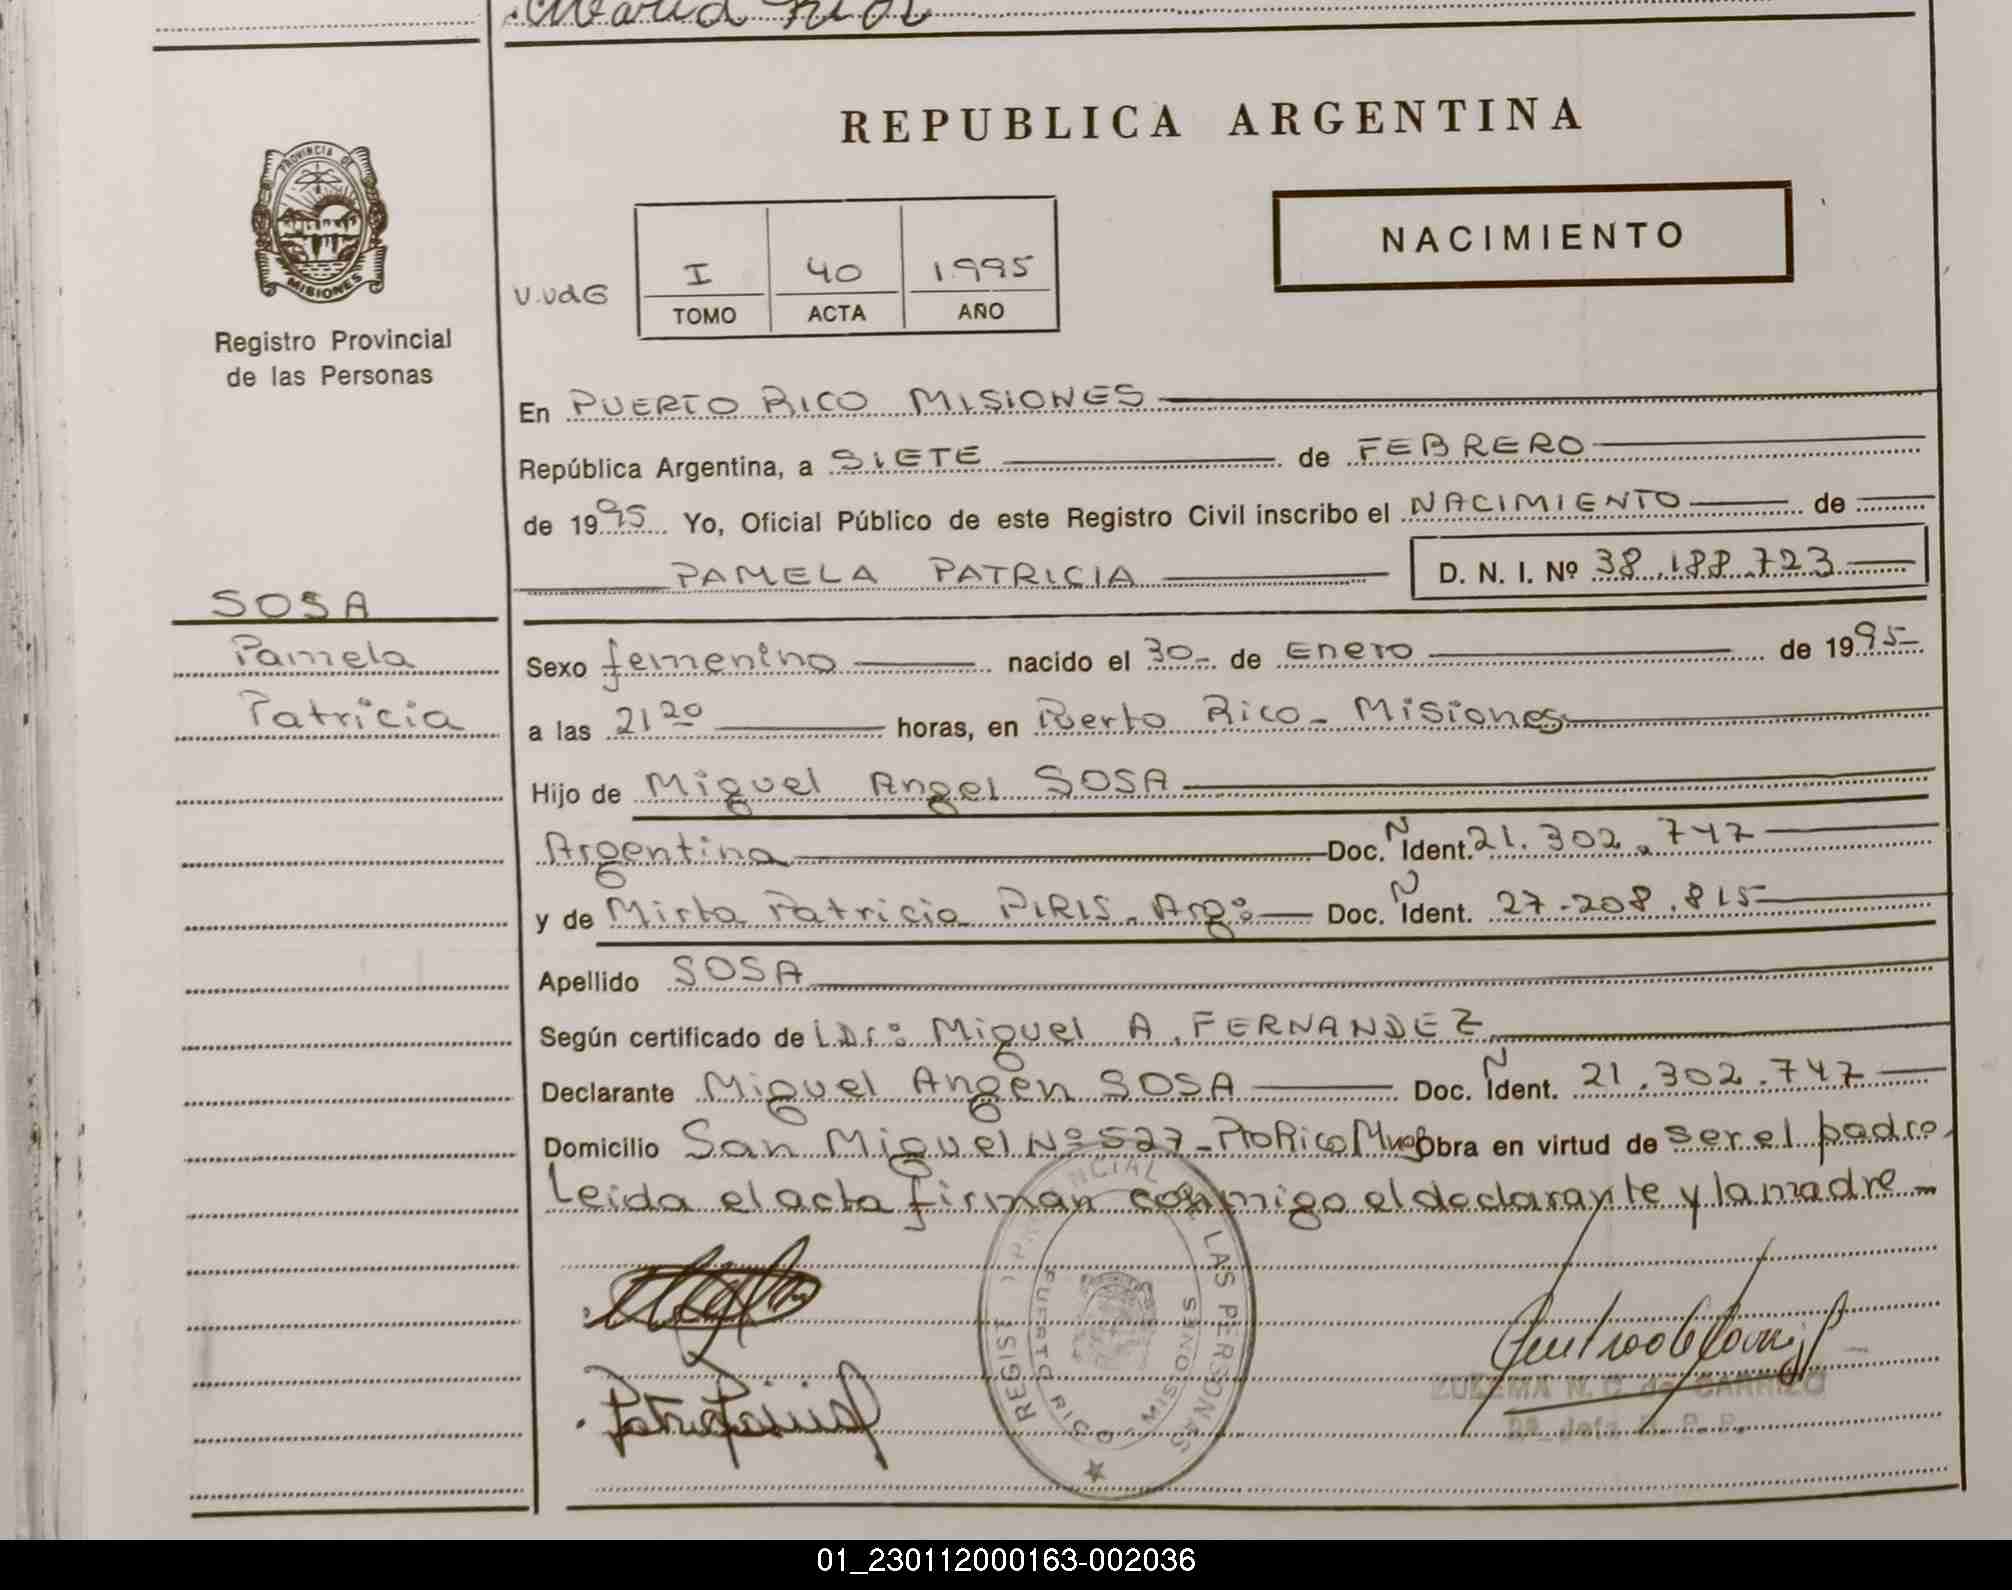 Maria
REPUBLICA ARGENTINA
PROVINCIA DE
MISIONES
Registro Provincial
de las Personas
NACIMIENTO
V.VdG
I 40 1995
TOMO ACTA AÑO
En PUERTO RICO MISIONES
República Argentina, a SIETE de FEBRERO
de 1995 Yo, Oficial Público de este Registro Civil inscribo el NACIMIENTO de
PAMELA PATRICIA D. N. I. Nº 38.188.723
SOSA
Pamela
Patricia
Sexo femenino nacido el 30 de Enero de 1995
a las 21 20 horas, en Puerto Rico - Misiones
Hijo de Miguel Angel SOSA
Argentina Doc. Ñ Ident. 21.302.747
y de Mirta Patricia PIRIS. Arg: Doc. Ñ Ident. 27-208.815
Apellido SOSA
Según certificado de Dr: Miguel A. FERNANDEZ
Declarante Miguel Angen SOSA Doc. Ñ Ident. 21.302.747
Domicilio San Miguel Nº 527 - Pto Rico Mnes Obra en virtud de ser el padre.
Leida el acta firman conmigo el declarante y la madre -
REGIST PROVINCIAL DE LAS PERSONAS
PUERTO RICO - MISIONES
ZULEMA N. C de CARRIZO
R. P. P.
01_230112000163-002036